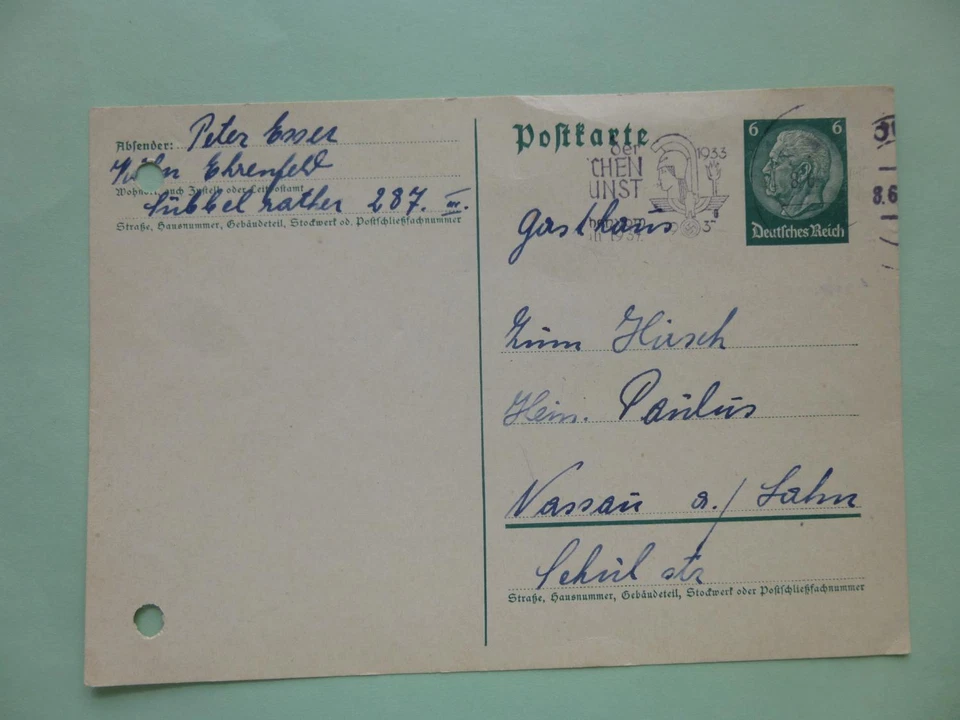 Absender: Peter Esser
Köln Ehrenfeld
Wohnort, auch Zustell- oder Leitpostamt
Sübbelrather 287. III.
Straße, Hausnummer, Gebäudeteil, Stockwerk od. Postschließfachnummer
Postkarte
der
CHEN
UNST
1933
6 6
Deutsches Reich
8.6
Gasthaus
Zum Hirsch
Hein. Paulus
Nassau a./Lahn
Schulstr
Straße, Hausnummer, Gebäudeteil, Stockwerk oder Postschließfachnummer